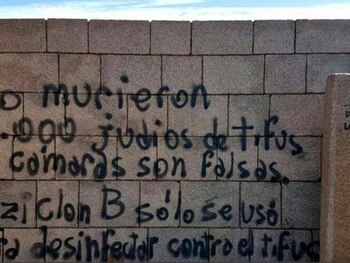 o murieron
.000 judios de tifus
camaras son falsas.
ziclon B sólo se usó
ra desinfectar contra el tifus